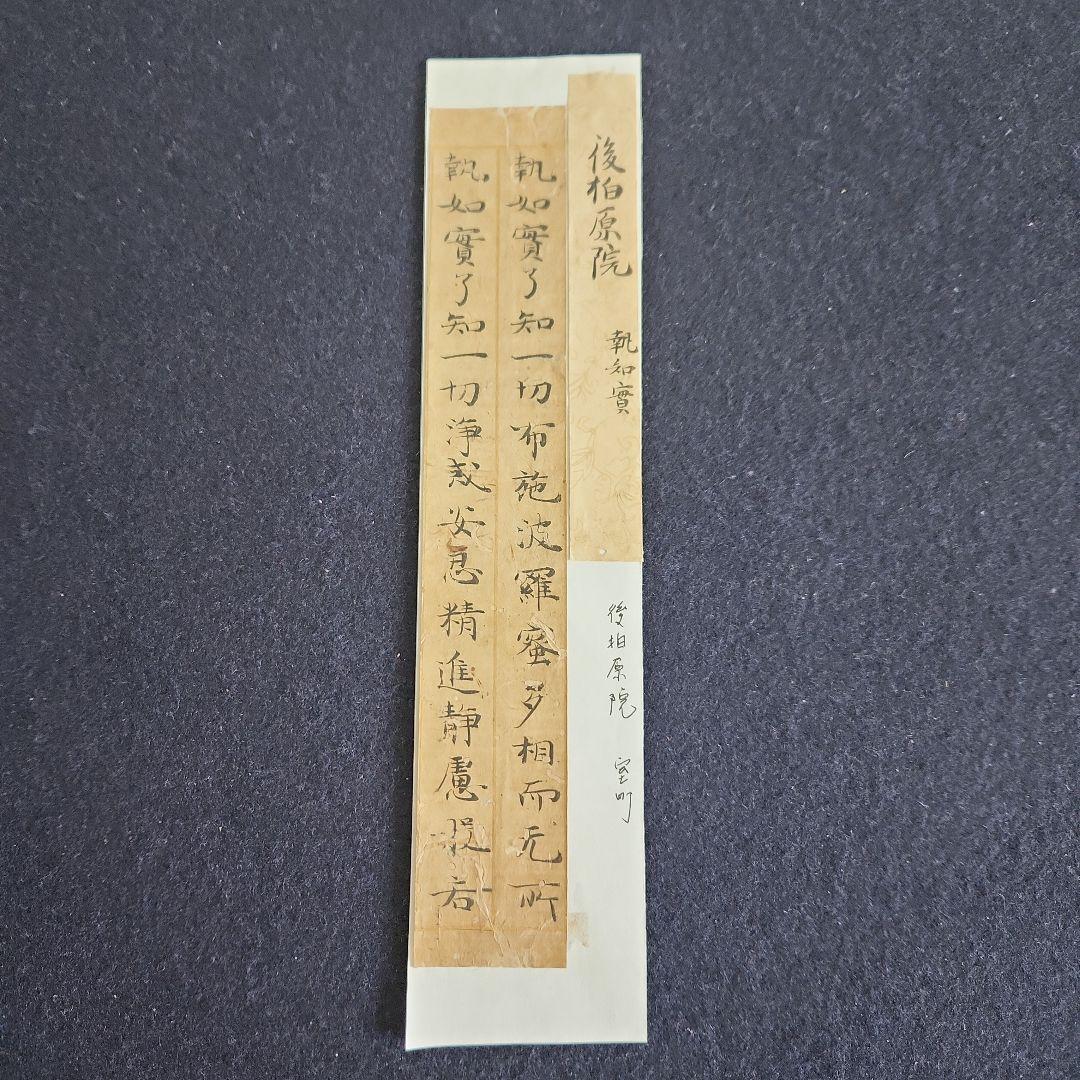 後柏原院
執如實
後柏原院 室町
執如實了知一切布施波羅蜜多相而无所
執如實了知一切淨戒安忍精進靜慮般若